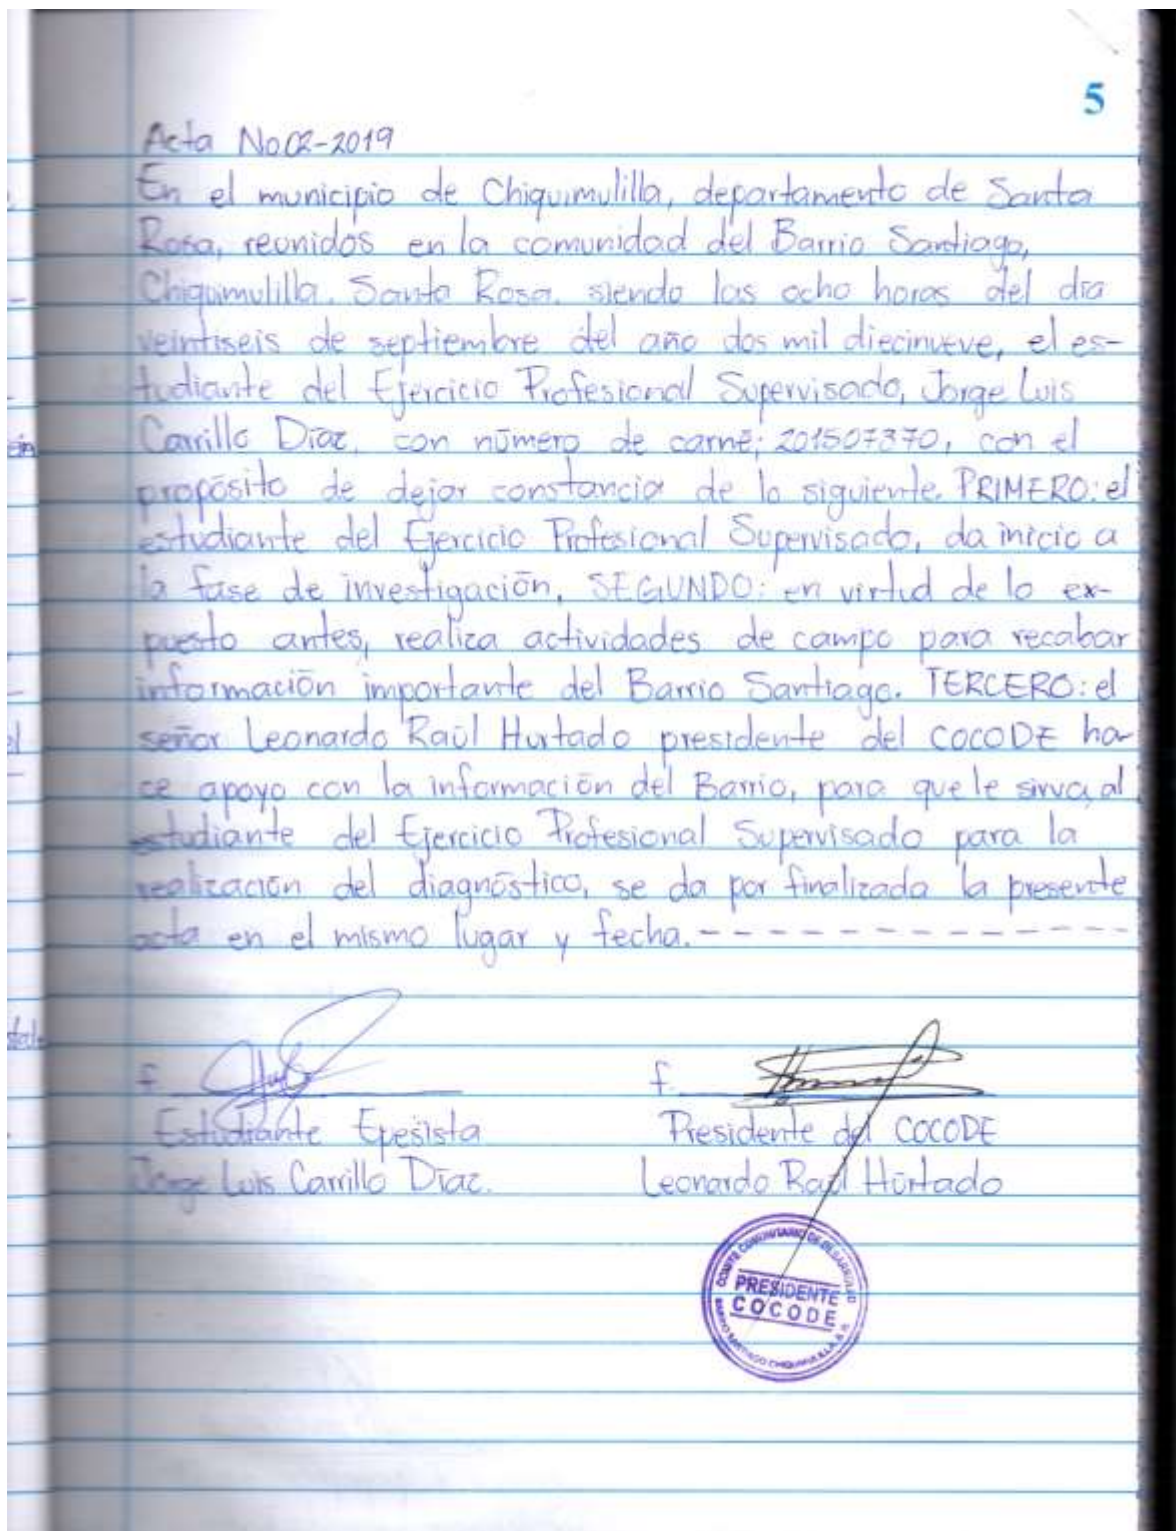 5
Acta No 02-2019
En el municipio de Chiquimulilla, departamento de Santa
Rosa, reunidos en la comunidad del Barrio Santiago,
Chiquimulilla. Santa Rosa. siendo las ocho horas del día
veintiseis de septiembre del año dos mil diecinueve, el es-
tudiante del Ejercicio Profesional Supervisado, Jorge Luis
Carrillo Díaz, con número de carné; 201507370, con el
propósito de dejar constancia de lo siguiente. PRIMERO: el
estudiante del Ejercicio Profesional Supervisado, da inicio a
la fase de investigación, SEGUNDO: en virtud de lo ex-
puesto antes, realiza actividades de campo para recabar
información importante del Barrio Santiago. TERCERO: el
señor Leonardo Raúl Hurtado presidente del COCODE ha-
ce apoyo con la información del Barrio, para que le sirva, al
estudiante del Ejercicio Profesional Supervisado para la
realización del diagnóstico, se da por finalizada la presente
acta en el mismo lugar y fecha. - - - - - - - - - - - - - - -
f. f.
Estudiante Epesista Presidente del COCODE
Jorge Luis Carrillo Díaz. Leonardo Raúl Húrtado
COMITE COMUNITARIO DE DESARROLLO
PRESIDENTE
COCODE
BARRIO SANTIAGO CHIQUIMULILLA, S. R.